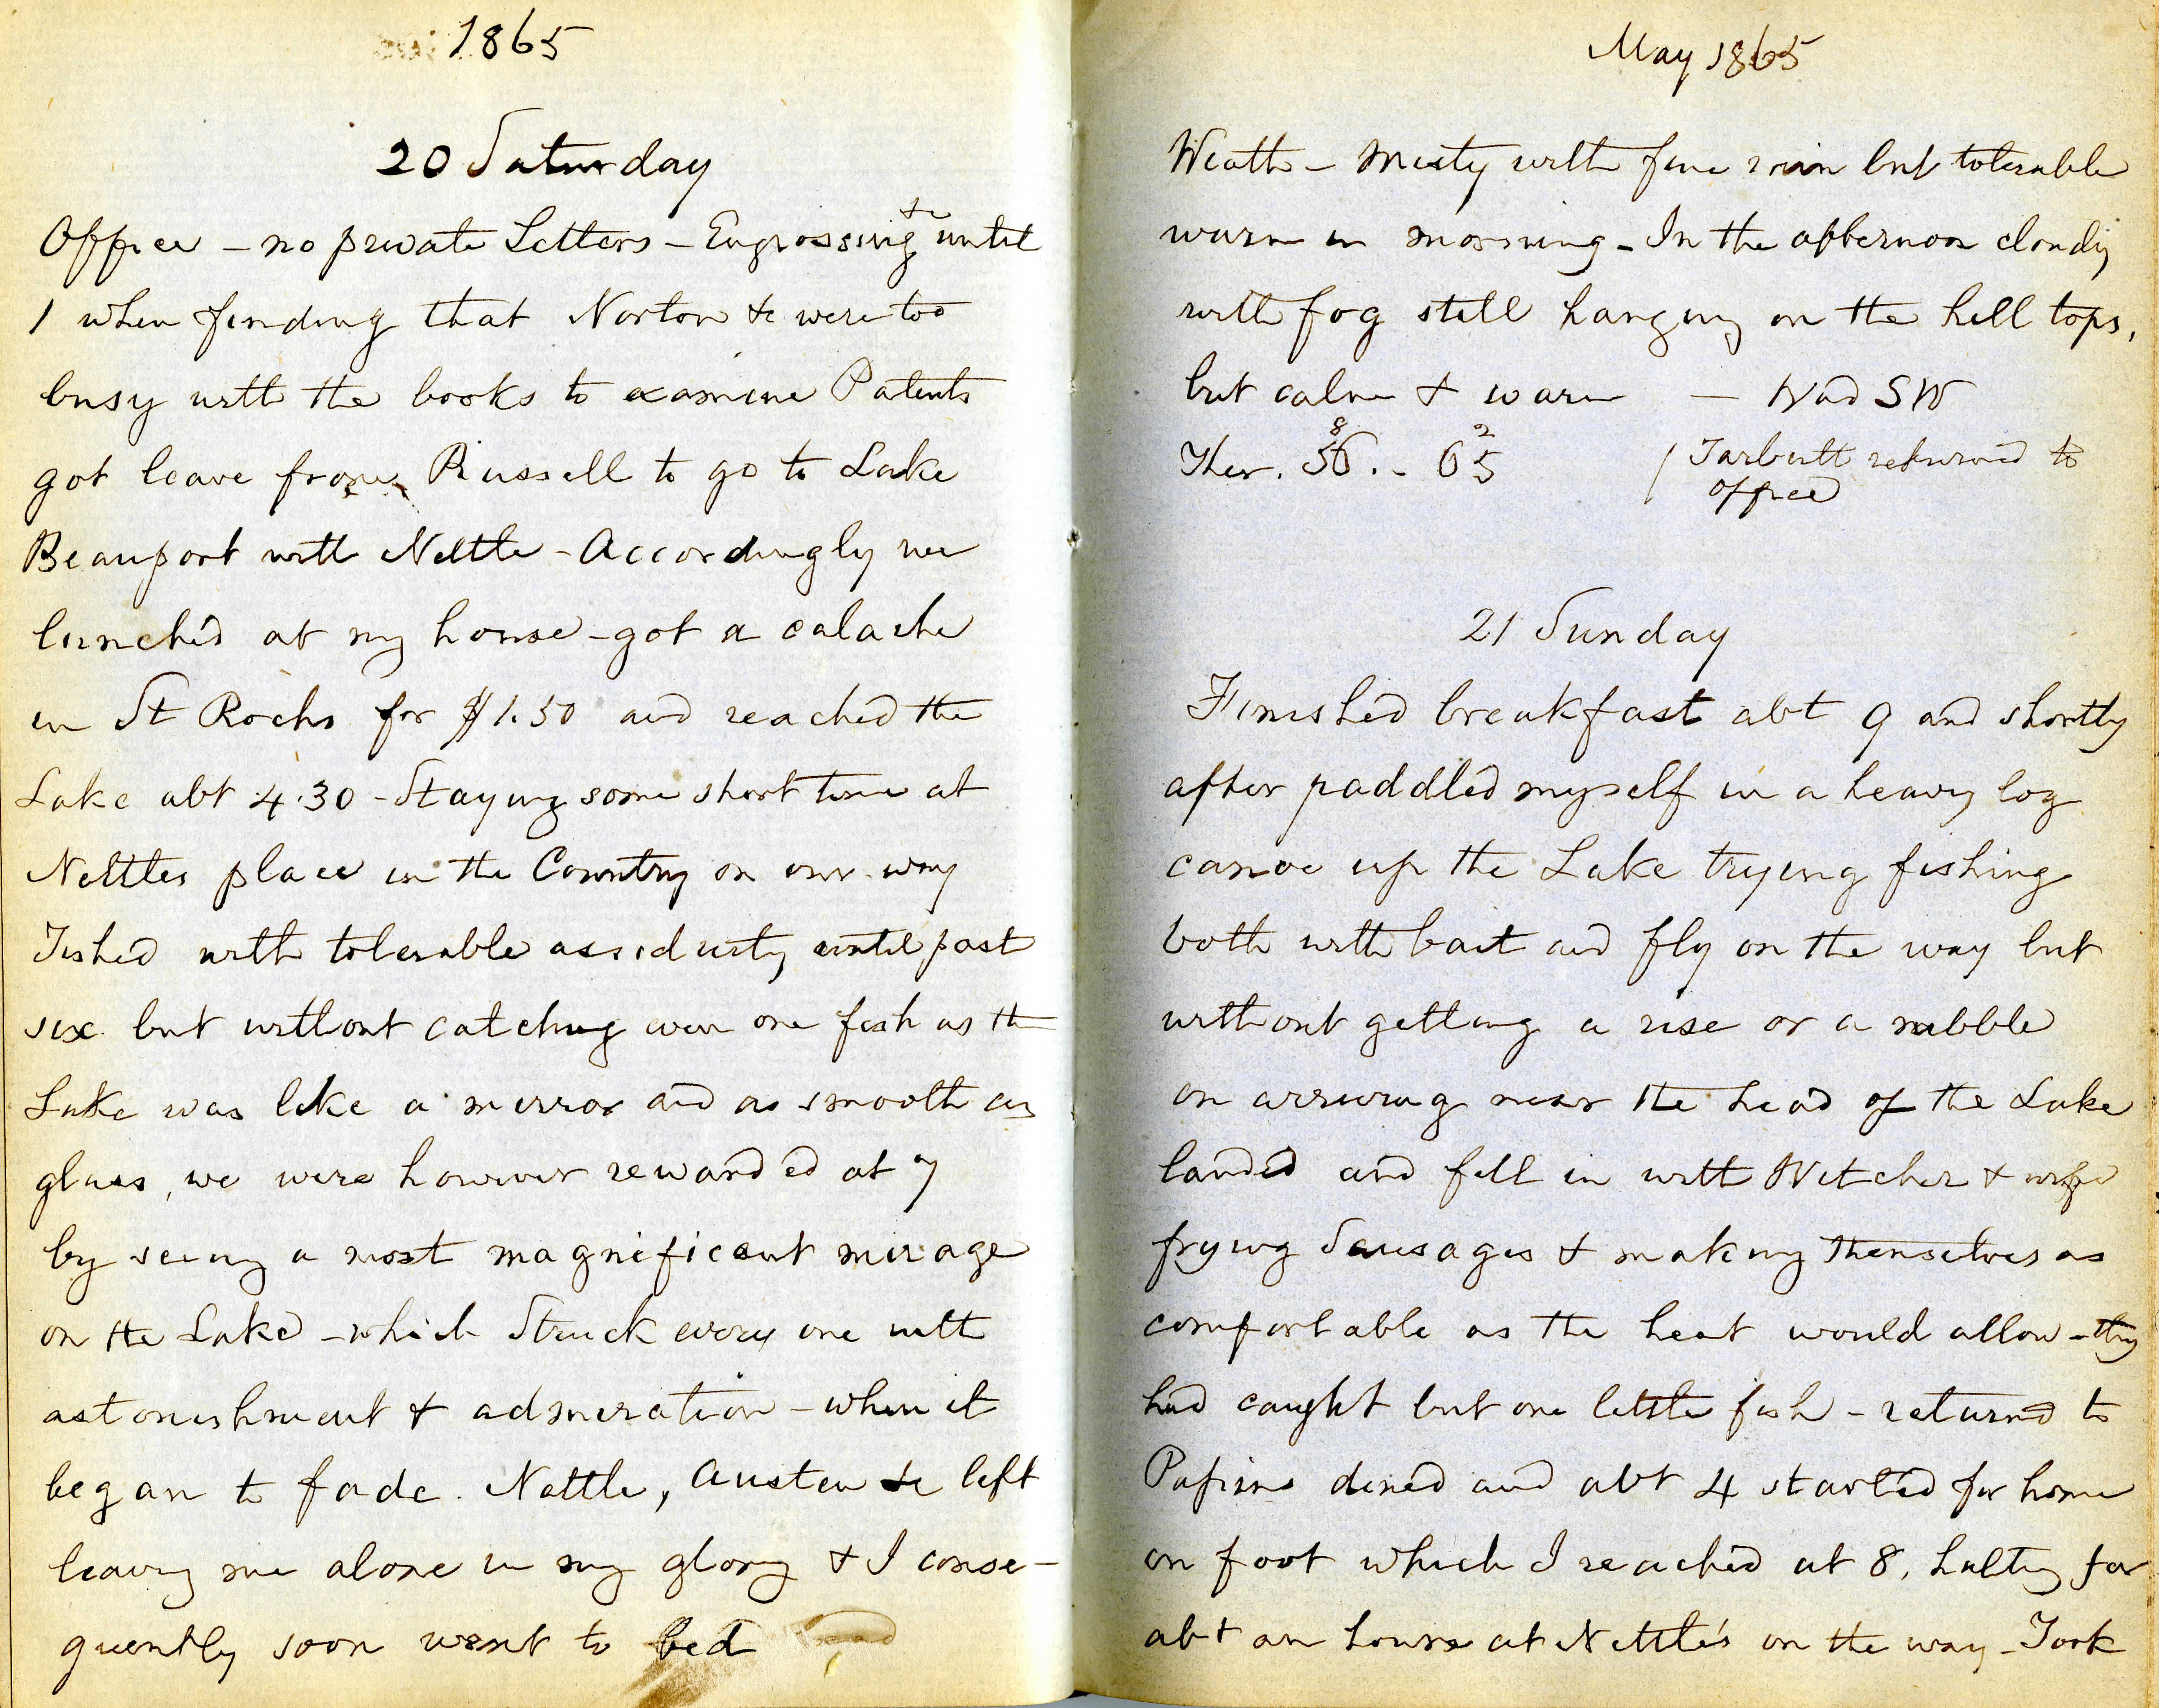 1865
20 Saturday
Office - no private Letters - Engrossing &c until
1 when finding that Norton &c were too
busy with the books to examine Patents
got leave from Russell to go to Lake
Beauport with Nettle - Accordingly we
lunched at my house - got a calache
in St Rochs for $1.50 and reached the
Lake abt 4.30 - Staying some short time at
Nettles place in the Country on our way
Fished with tolerable assiduity until past
six but without catching even one fish as the
Lake was like a mirror and as smooth as
glass, we were however rewarded at 7
by seeing a most magnificent mirage
on the Lake - which Struck every one with
astonishment & admiration - when it
began to fade. Nettle, Austen &c left
leaving me alone in my glory & I conse-
quently soon went to bed
May 1865
Weath - Misty with fine rain but tolerable
warm in morning - In the afternoon cloudy
with fog still hanging on the hill tops,
but calm & warm - Wnd SW
Ther. 56.8 - 65.2 / Tarbutt returned to
office
21 Sunday
Finished breakfast abt 9 and shortly
after paddled myself in a heavy log
canoe up the Lake trying fishing
both with bait and fly on the way but
without getting a rise or a nibble
on arriving near the head of the Lake
landed and fell in with Witcher & wife
frying Sausages & making themselves as
comfortable as the heat would allow - they
had caught but one little fish - returned to
dined and abt 4 started for home
on foot which I reached at 8, halting for
abt an hour at Nettle's on the way - Took